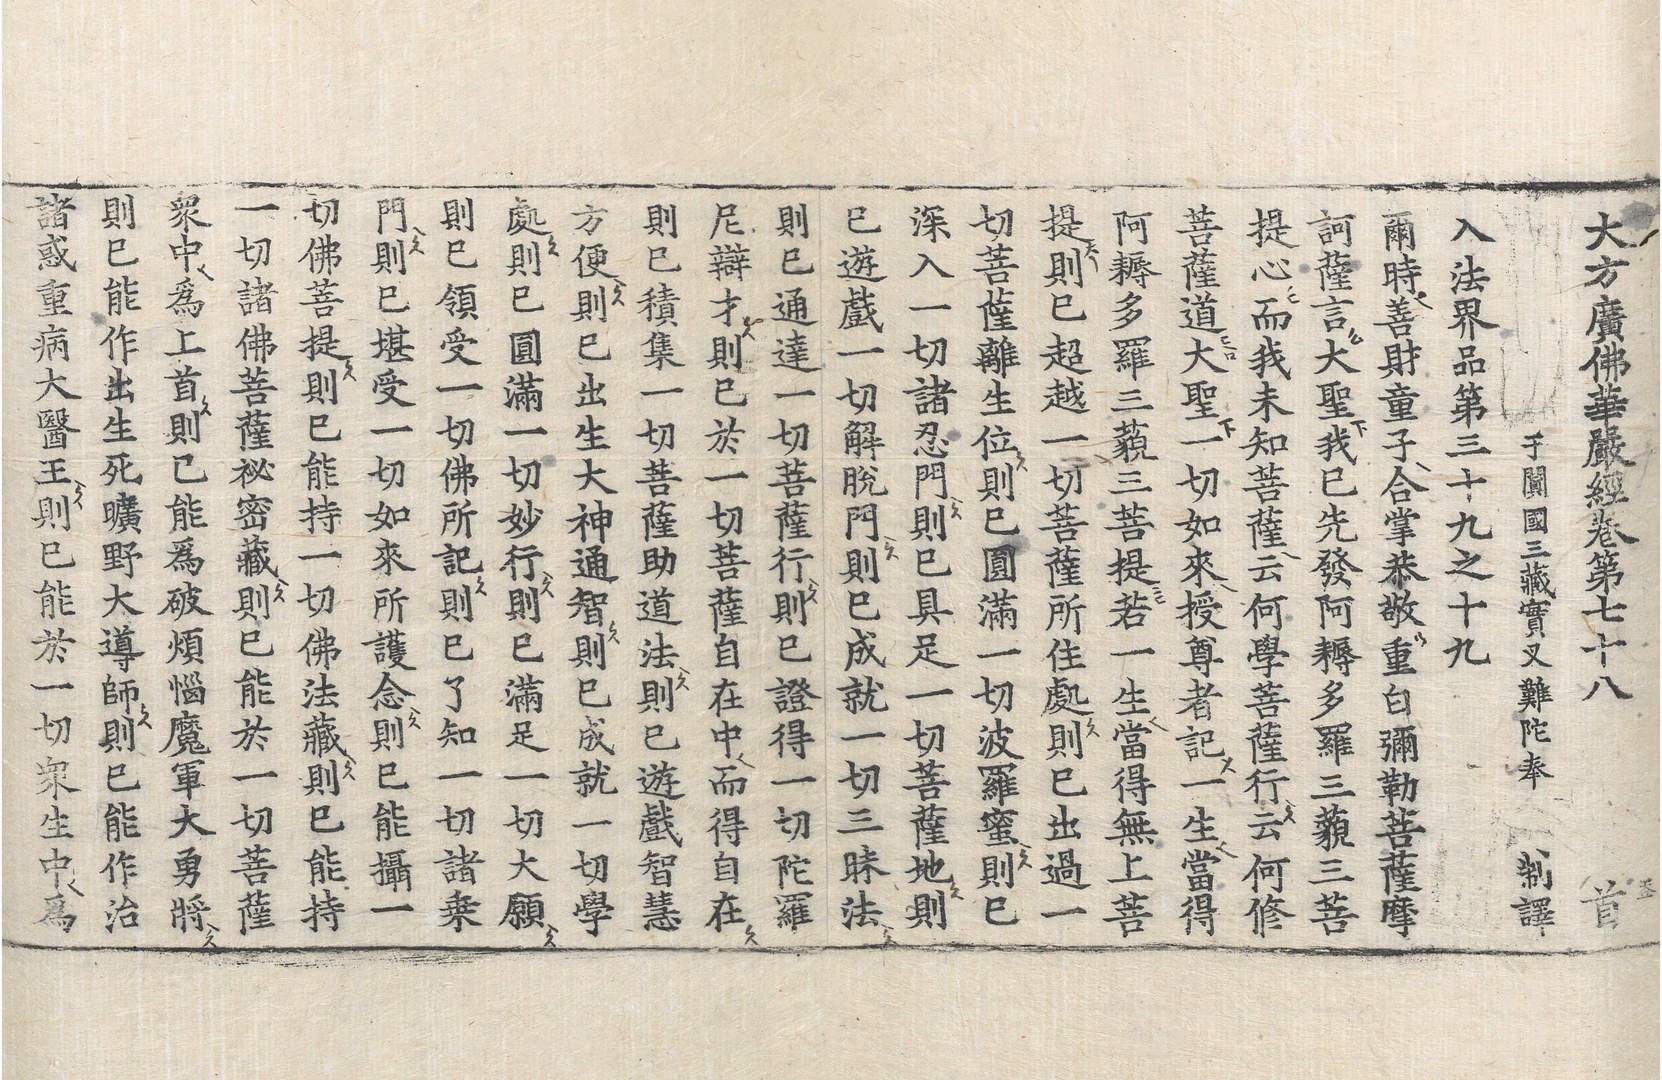 大方廣佛華嚴經卷第七十八 首
于闐國三藏實叉難陀奉 制譯
入法界品第三十九之十九
爾時善財童子合掌恭敬重白彌勒菩薩摩
訶薩言大聖我已先發阿耨多羅三藐三菩
提心而我未知菩薩云何學菩薩行云何修
菩薩道大聖一切如來授尊者記一生當得
阿耨多羅三藐三菩提若一生當得無上菩
提則已超越一切菩薩所住處則已出過一
切菩薩離生位則已圓滿一切波羅蜜則已
深入一切諸忍門則已具足一切菩薩地則
已遊戲一切解脫門則已成就一切三昧法
則已通達一切菩薩行則已證得一切陀羅
尼辯才則已於一切菩薩自在中而得自在
則已積集一切菩薩助道法則已遊戲智慧
方便則已出生大神通智則已成就一切學
處則已圓滿一切妙行則已滿足一切大願
則已領受一切佛所記則已了知一切諸乘
門則已堪受一切如來所護念則已能攝一
切佛菩提則已能持一切佛法藏則已能持
一切諸佛菩薩祕密藏則已能於一切菩薩
衆中爲上首則已能爲破煩惱魔軍大勇將
則已能作出生死曠野大導師則已能作治
諸惑重病大醫王則已能於一切衆生中爲